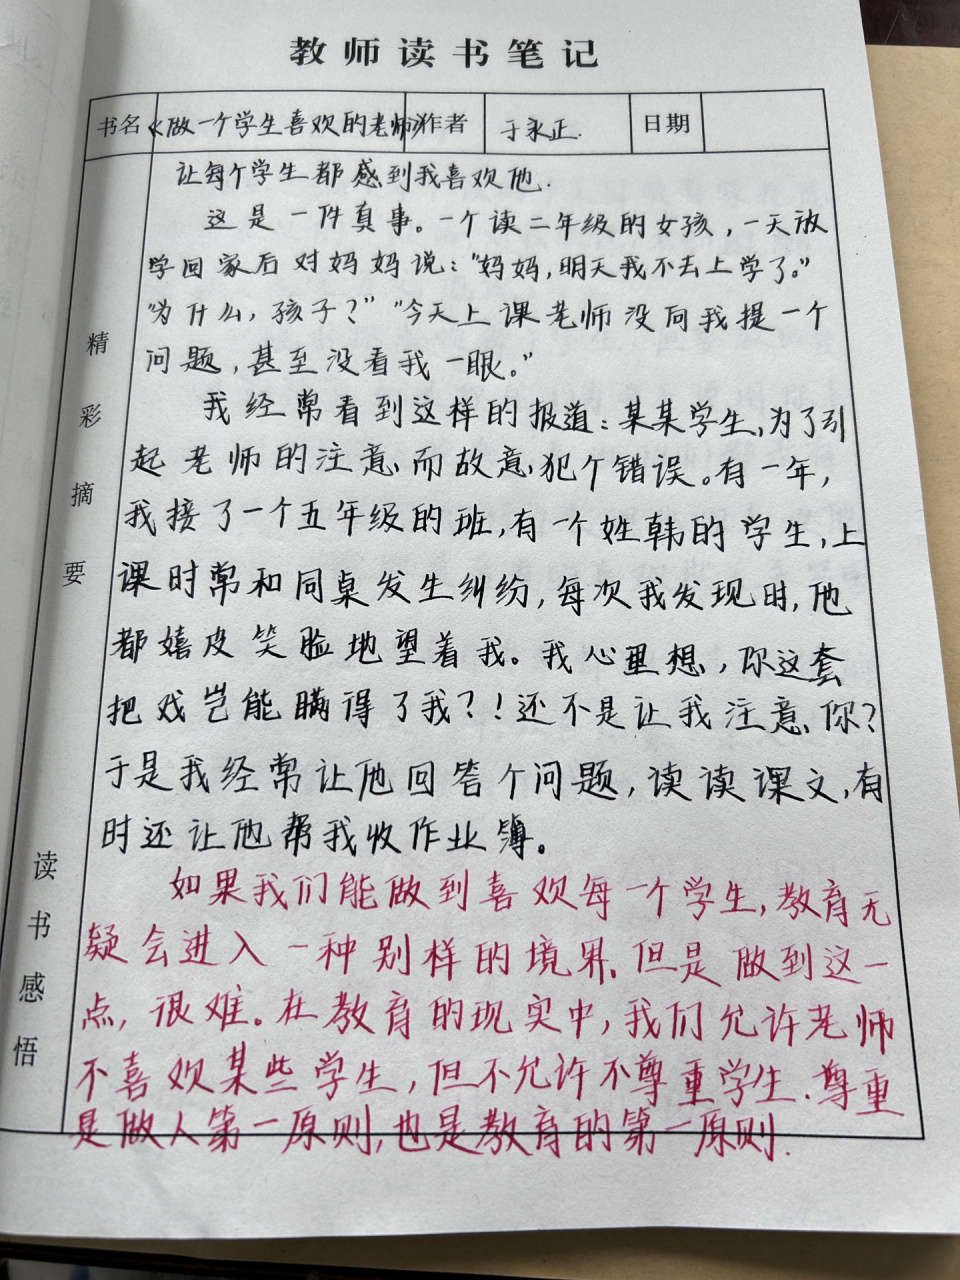 教师读书笔记
书名 《做一个学生喜欢的老师》 作者 于永正. 日期
精彩摘要
让每个学生都感到我喜欢他.
这是一件真事。一个读二年级的女孩，一天放
学回家后对妈妈说："妈妈，明天我不去上学了。"
"为什么，孩子？""今天上课老师没向我提一个
问题，甚至没看我一眼。"
我经常看到这样的报道：某某学生，为了引
起老师的注意，而故意犯个错误。有一年，
我接了一个五年级的班，有一个姓韩的学生，上
课时常和同桌发生纠纷，每次我发现时，他
都嬉皮笑脸地望着我。我心里想，你这套
把戏岂能瞒得了我？！还不是让我注意你？
于是我经常让他回答个问题，读读课文，有
时还让他帮我收作业簿。
读书感悟
如果我们能做到喜欢每一个学生，教育无
疑会进入一种别样的境界，但是做到这一
点，很难。在教育的现实中，我们允许老师
不喜欢某些学生，但不允许不尊重学生.尊重
是做人第一原则，也是教育的第一原则.